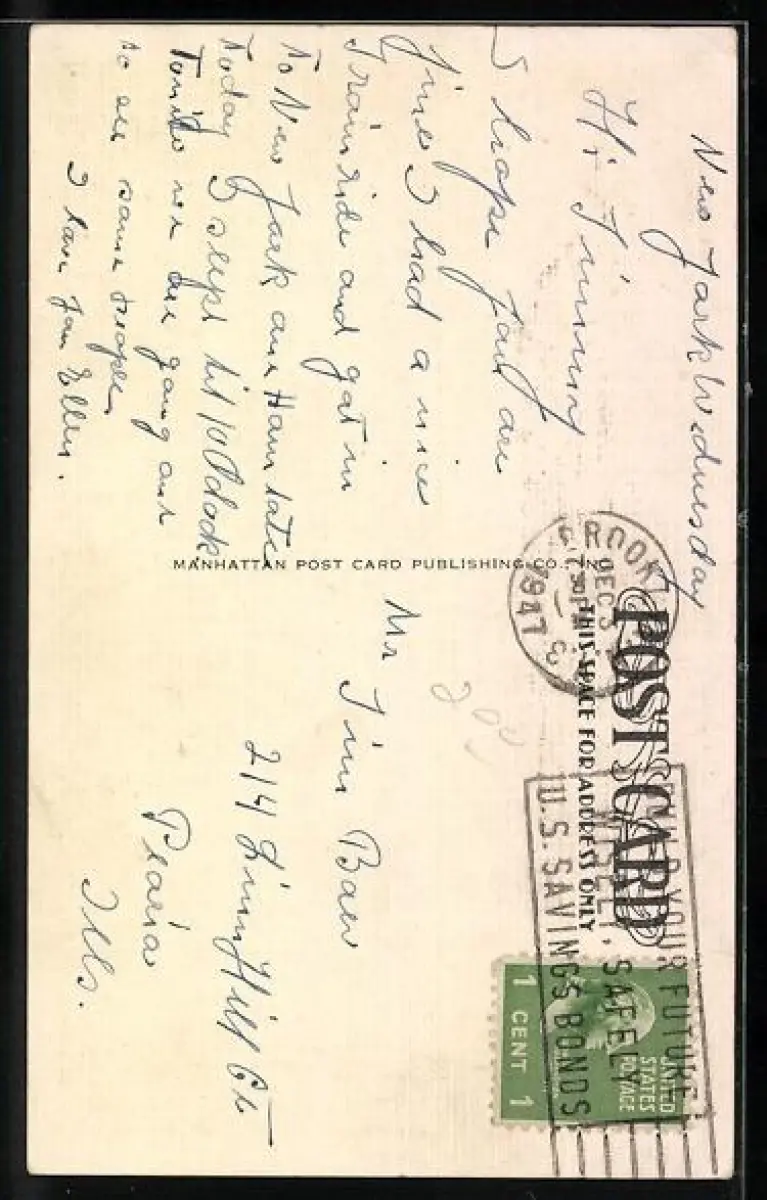 New York Wednesday
Hi Jimmy
I hope you are
fine I had a nice
Train ride and got in
to New York
today I slept til 10 O clock
Tonite we are going out
to see some people
I love you Ellen.
MANHATTAN POST CARD PUBLISHING CO., INC.
POST CARD
THIS SPACE FOR ADDRESS ONLY
BROOKLYN
DEC 3
1947
YOUR FUTURE
WISELY, SAFELY
U.S. SAVINGS BONDS
UNITED
STATES
POSTAGE
1 CENT 1
Mr Jim Baer
214 Linn Hill Ct
Peoria
Ills.